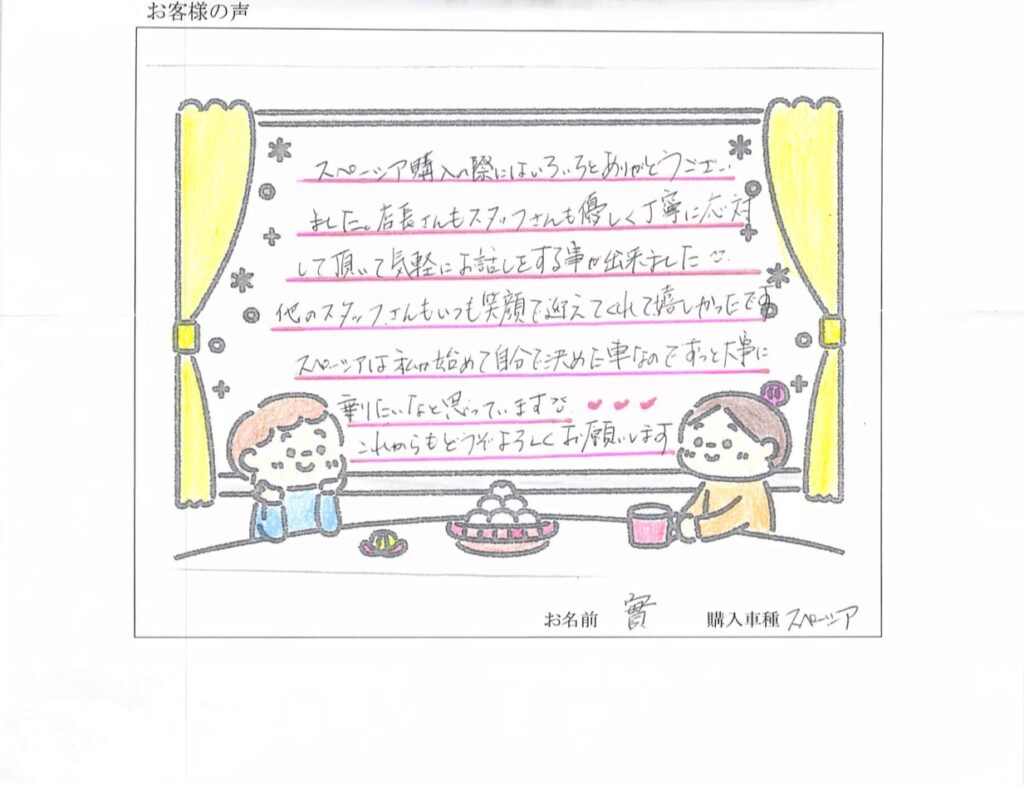 お客様の声
スペーシア購入の際にはいろいろとありがとうござい
ました。店長さんもスタッフさんも優しく丁寧に応対
して頂いて気軽にお話しをする事が出来ました
他のスタッフさんもいつも笑顔で迎えてくれて嬉しかったです
スペーシアは私が始めて自分で決めた車なのでずっと大事に
乗りたいなと思っています
これからもどうぞよろしくお願いします
お名前 實 購入車種 スペーシア